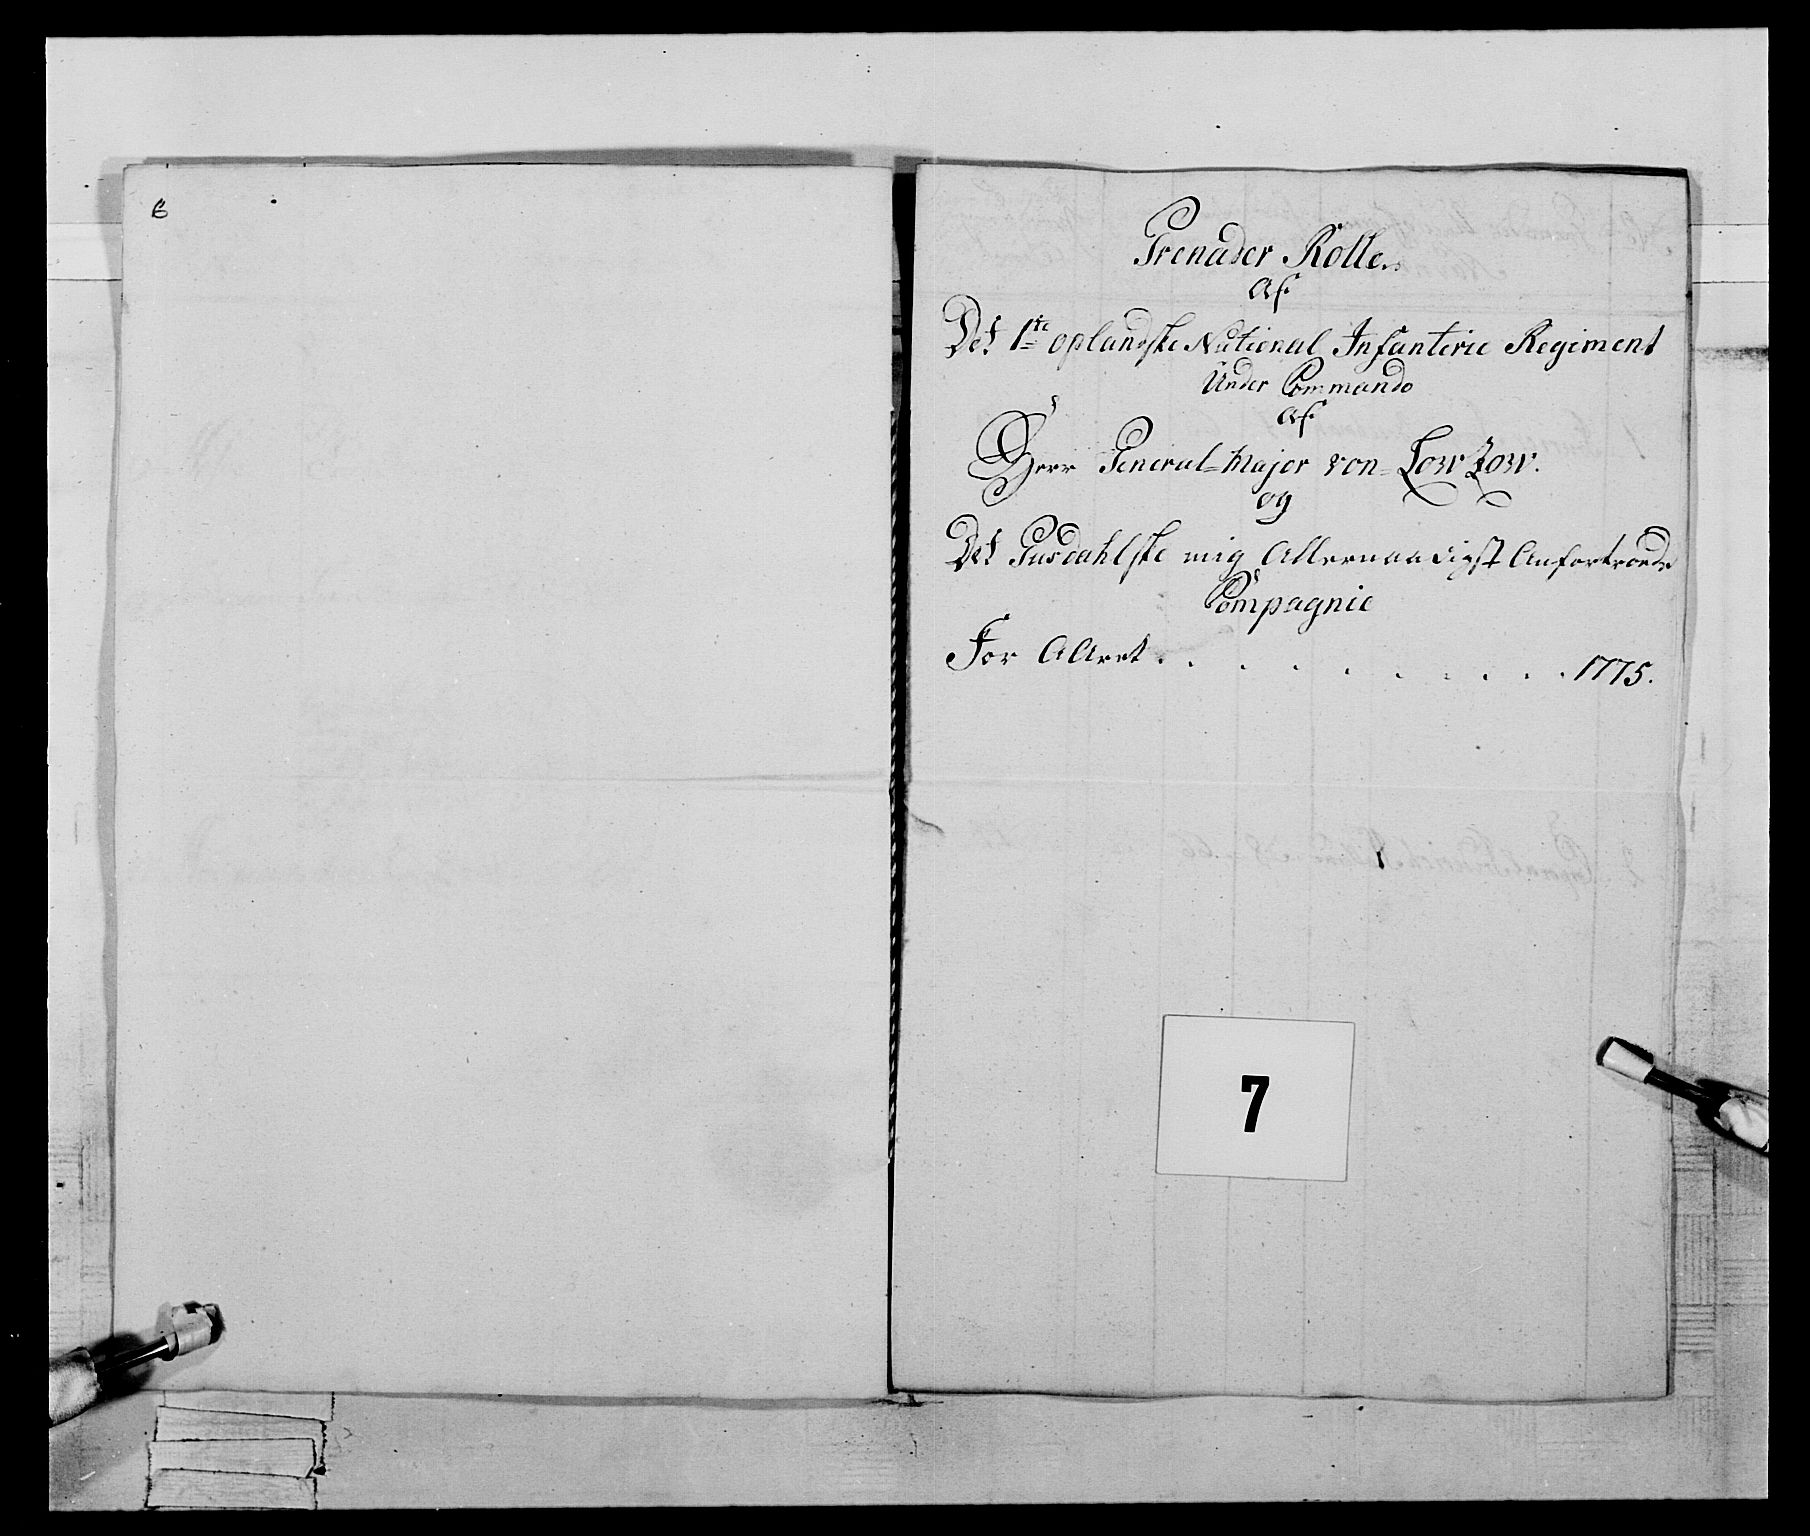 6
Grenader Rolle
Af
Det 1te oplandske National Infanterie Regiment
Under Commando
af
Herr General-Major von Lowzow.
og
Det Gusdahlske mig Allernaadigst Anfortroede
Compagnie
For AAret . . . . . . . . . . 1775.
7